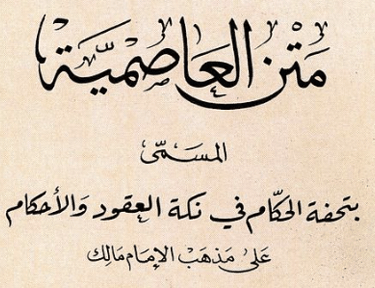 مَتْن العَاصِمِيَّة
المسَمّى
بتحفة الحكّام في نكتة العقود وَالأحكام
عَلى مَذهَبْ الإمَام مَالِك